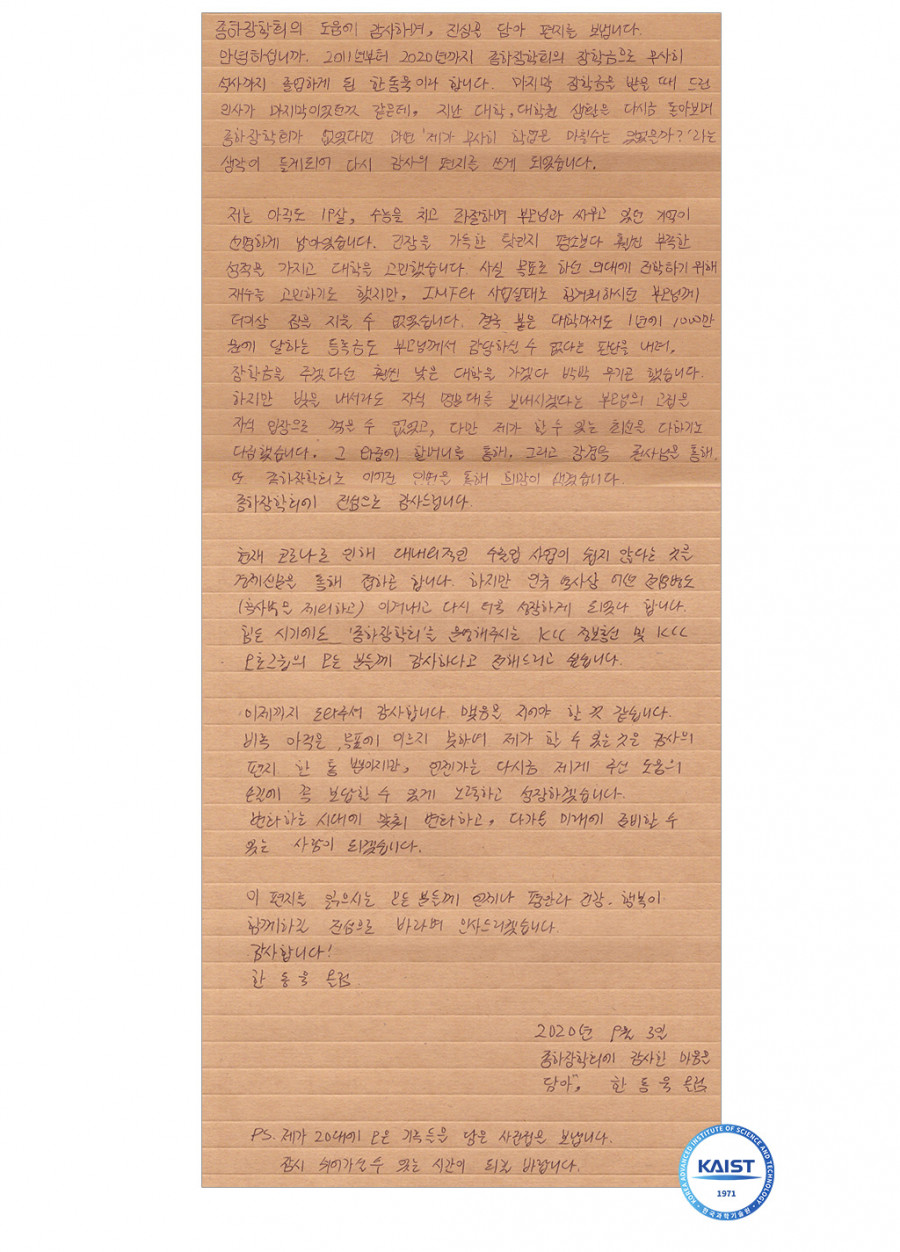 종하장학회의 도움에 감사하며, 진심을 담아 편지를 보냅니다.
안녕하십니까. 2011년부터 2020년까지 종하장학회의 장학금으로 무사히
석사까지 졸업하게 된 한동욱이라 합니다. 마지막 장학금을 받을 때 드린
인사가 마지막이었던것 같은데, 지난 대학, 대학원 생활을 다시금 돌아보며
종하장학회가 없었다면 과연 '제가 무사히 학업을 마칠수는 있었을까?'라는
생각이 들게되어 다시 감사의 편지를 쓰게 되었습니다.
저는 아직도 19살, 수능을 치고 좌절하며 부모님과 싸우고 있던 기억이
선명하게 남아있습니다. 긴장을 가득한 탓인지 평소보다 훨씬 부족한
성적을 가지고 대학을 고민했습니다. 사실 목표로 하던 의대에 진학하기 위해
재수를 고민하기도 했지만, IMF와 사업실패로 힘겨워하시던 부모님께
더이상 짐을 지울 수 없었습니다. 결국 붙은 대학마저도 1년에 1000만
원에 달하는 등록금도 부모님께서 감당하실 수 없다는 판단을 내려,
장학금을 주겠다던 훨씬 낮은 대학을 가겠다 박박 우기곤 했습니다.
하지만 빚을 내서라도 자식 명문대를 보내시겠다는 부모님의 고집을
자식 입장으로 꺾을 수 없었고, 다만 제가 할 수 있는 최선을 다하기로
다짐했습니다. 그 와중에 할머니를 통해, 그리고 집사님을 통해,
또 종하장학회로 이어진 인연을 통해 희망이 생겼습니다.
종하장학회에 진심으로 감사드립니다.
현재 코로나로 인해 대내외적인 수출입 사업이 쉽지 않다는 것을
경제신문을 통해 접하곤 합니다. 하지만 인류 역사상 어떤 전염병도
(흑사병은 제외하고) 이겨내고 다시 더욱 성장하게 되었다 합니다.
힘든 시기에도 '종하장학회'를 운영해주시는 KCC 정보통신 및 KCC
오토그룹의 모든 분들께 감사하다고 전해드리고 싶습니다.
이제까지 도와주셔 감사합니다. 맺음을 지어야 할 것 같습니다.
비록 아직은 목표에 이르지 못하여 제가 할 수 있는 것은 감사의
편지 한 통 뿐이지만, 언젠가는 다시금 제게 주신 도움의
손길에 꼭 보답할 수 있게 노력하고 성장하겠습니다.
변화하는 시대에 맞춰 변화하고, 다가올 미래에 준비할 수
있는 사람이 되겠습니다.
이 편지를 읽으시는 모든 분들께 언제나 평안과 건강, 행복이
함께하길 진심으로 바라며 인사드리겠습니다.
감사합니다!
한 동 욱 올림.
2020년 9월 3일
종하장학회에 감사한 마음을
담아, 한 동 욱 올림
PS. 제가 20대에 모은 기록들을 담은 사진첩을 보냅니다.
잠시 쉬어가실 수 있는 시간이 되길 바랍니다.
KOREA ADVANCED INSTITUTE OF SCIENCE AND TECHNOLOGY
KAIST
1971
한국과학기술원